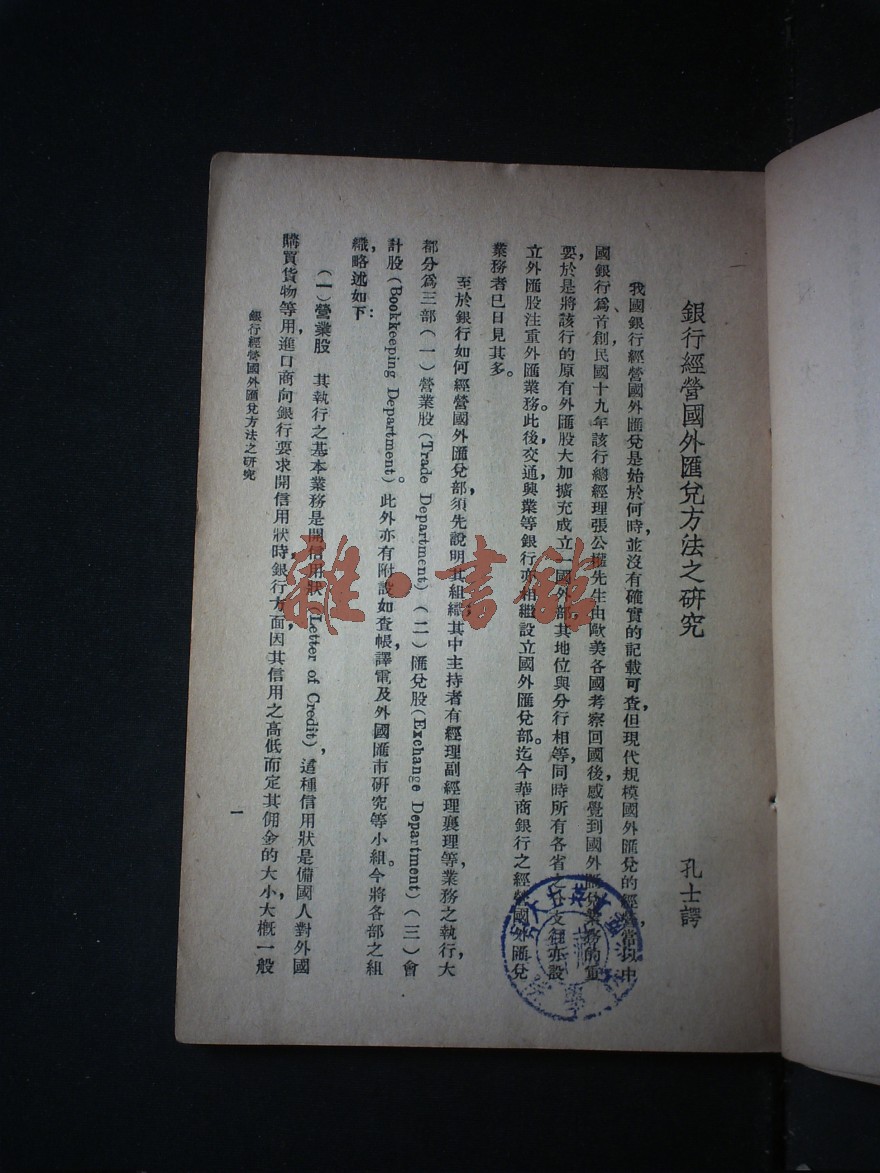 銀行經營國外匯兌方法之研究
孔士諤
我國銀行經營國外匯兌是始於何時，並沒有確實的記載可查，但現代規模國外匯兌的經 當以中
國銀行爲首創，民國十九年該行總經理張公權先生由歐美各國考察回國後，感覺到國外匯兌業務的重
要，於是將該行的原有外匯股大加擴充，成立一國外部，其地位與分行相等，同時所有各省 支行亦設
立外匯股注重外匯業務。此後，交通興業等銀行亦相繼設立國外匯兌部。迄今華商銀行之經營國外匯兌
業務者已日見其多。
至於銀行如何經營國外匯兌部，須先說明其組織，其中主持者有經理副經理襄理等，業務之執行，大
都分爲三部（一）營業股（Trade Department）（二）匯兌股（Exchange Department）（三）會
計股（Bookkeeping Department）。此外亦有附設如查帳譯電及外國匯市研究等小組。今將各部之組
織，略述如下：
（一）營業股　其執行之基本業務是開信用狀（Letter of Credit），這種信用狀是備國人對外國
購買貨物等用，進口商向銀行要求開信用狀時，銀行方面因其信用之高低而定其佣金的大小，大概一般
銀行經營國外匯兌方法之研究
一
雜·書館